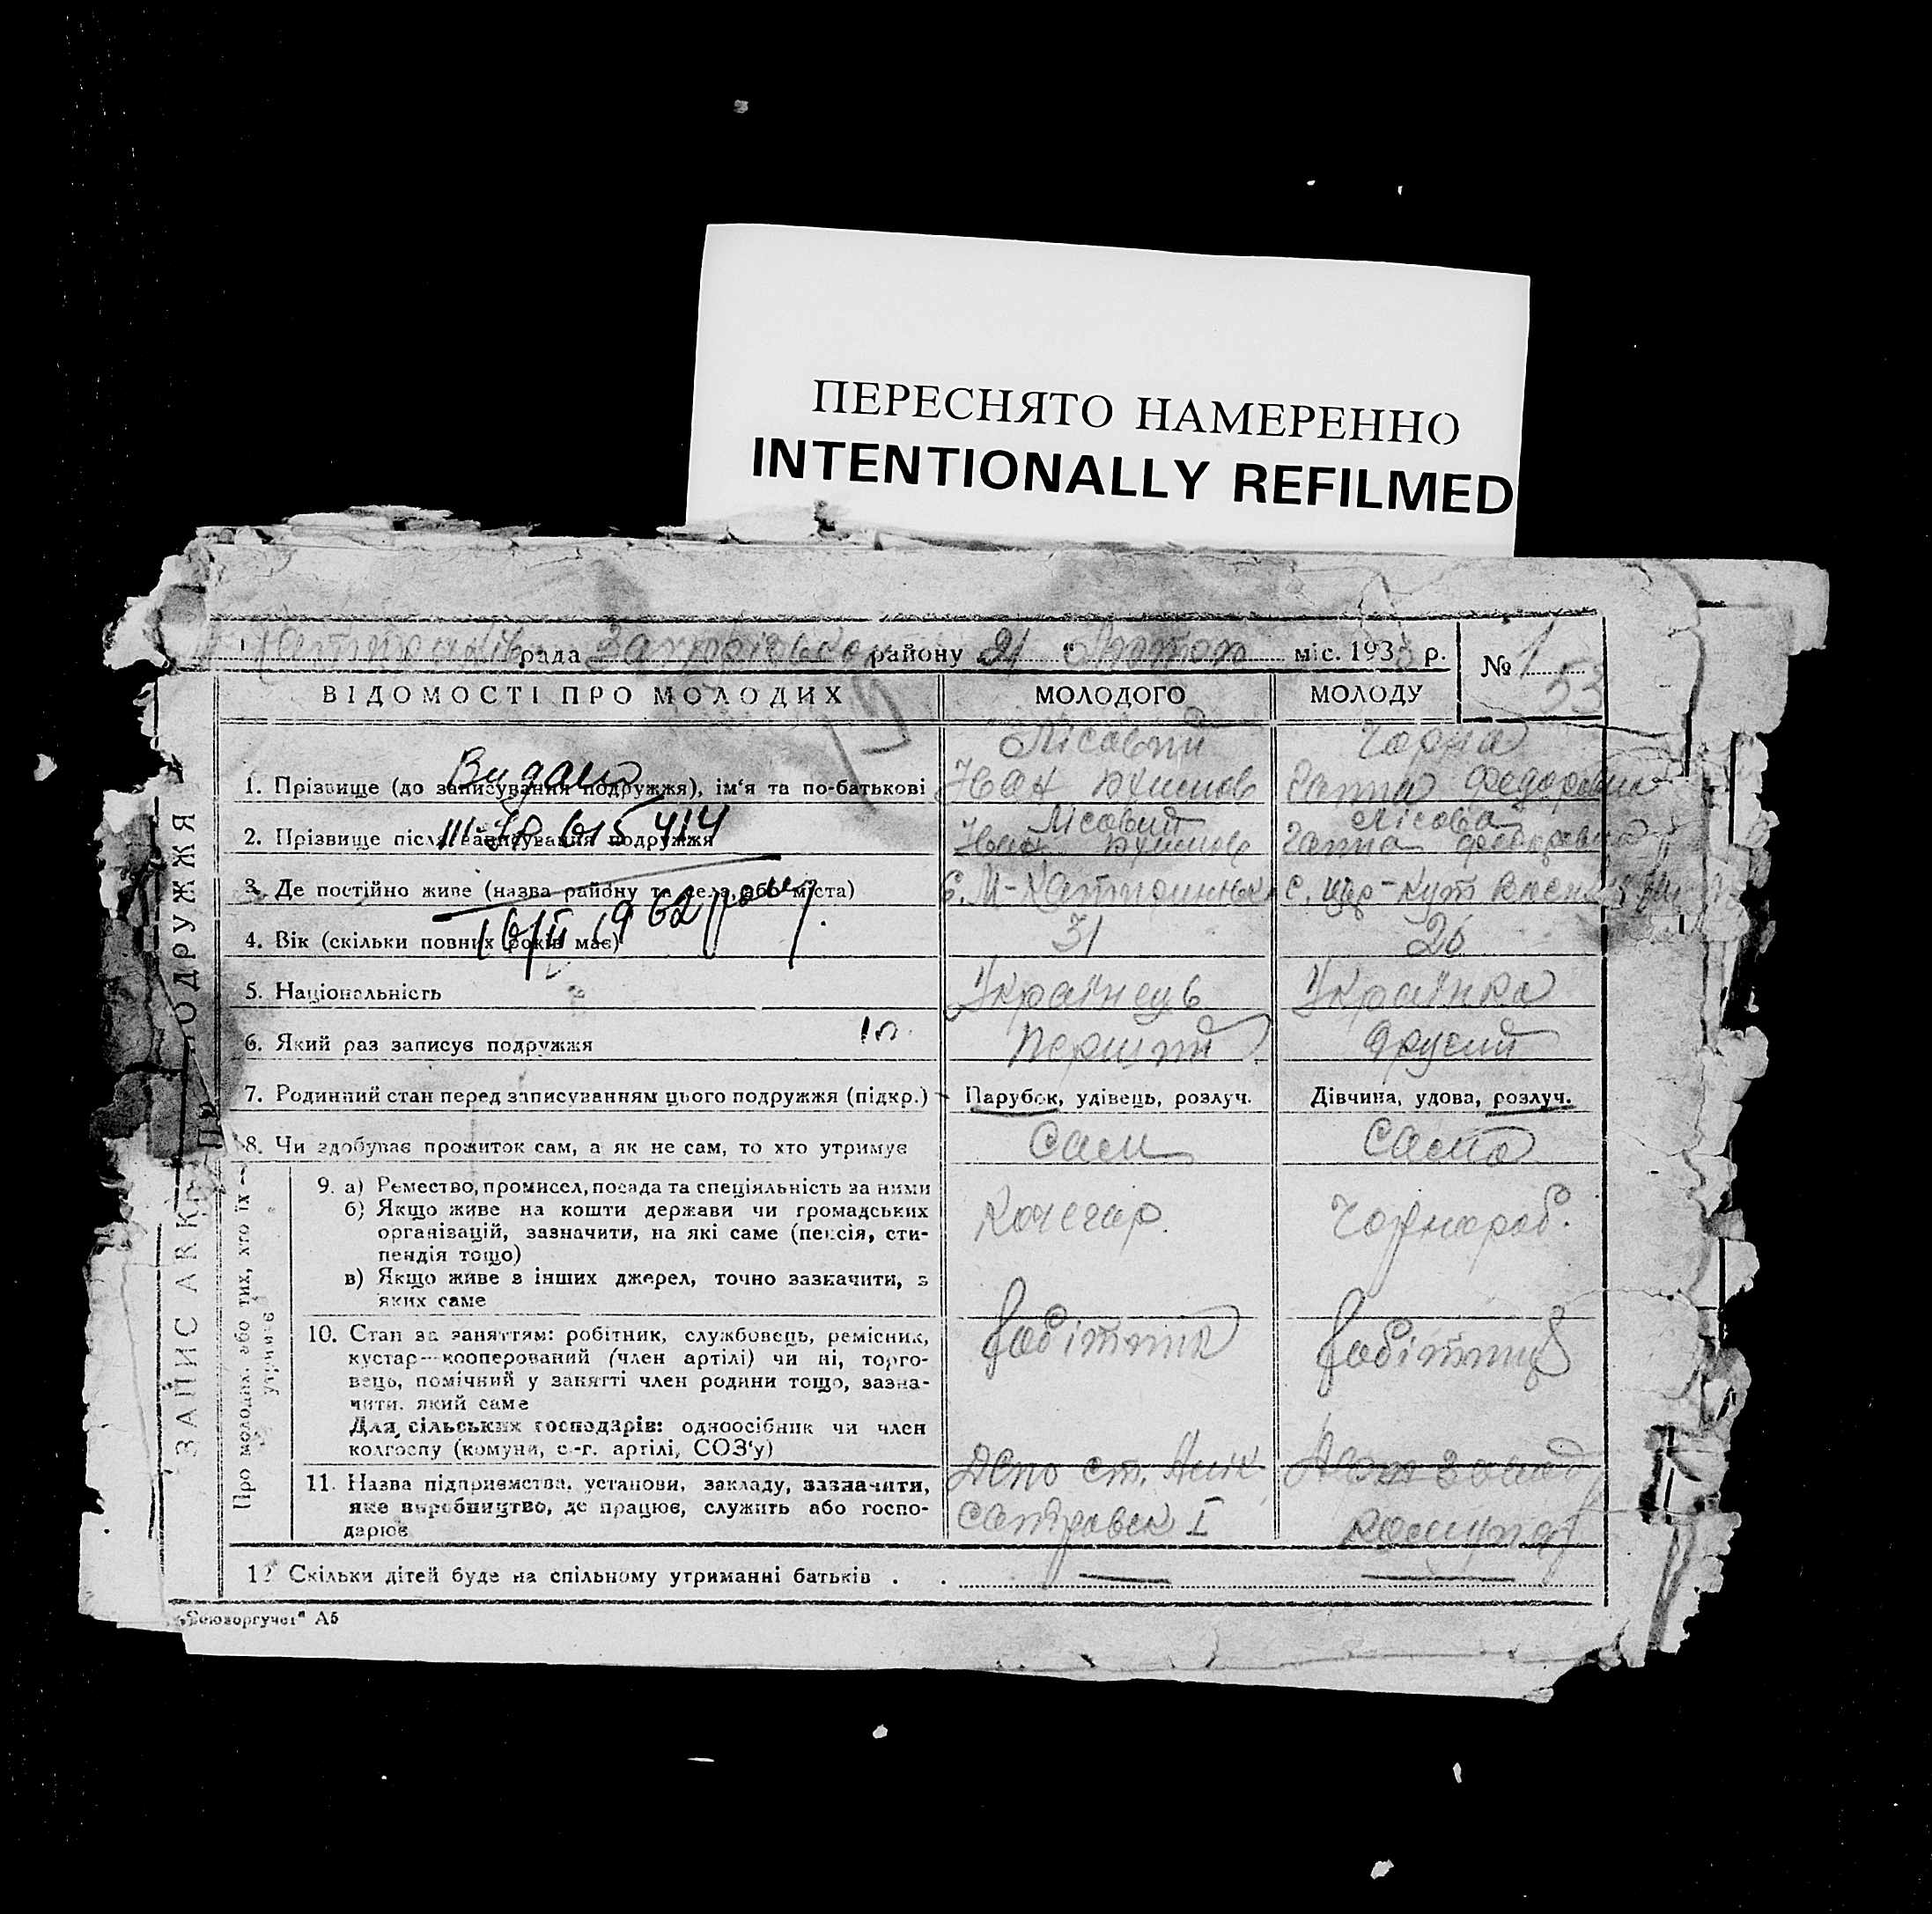 ПЕРЕСНЯТО НАМЕРЕННО
INTENTIONALLY REFILMED
рада району 21 " міс. 193 р.
№ 1
53
ВІДОМОСТІ ПРО МОЛОДИХ МОЛОДОГО МОЛОДУ
ЗАПИС АКТУ ПРО ПОДРУЖЖЯ
1. Прізвище (до записування подружжя), ім'я та по-батькові
Лісовий
Іван
Чорна
Ганна Федоровна
2. Прізвище після записування подружжя
Лісовий
Іван
Лісова
Ганна Федоровна
Видано
615414
16/II 1962 року.
3. Де постійно живе (назва району та села, або міста)
4. Вік (скільки повних років має) 31 26
5. Національність Українець Українка
6. Який раз записує подружжя перший другий
7. Родинний стан перед записуванням цього подружжя (підкр.) Парубок, удівець, розлуч. Дівчина, удова, розлуч.
8. Чи здобуває прожиток сам, а як не сам, то хто утримує Сам Сама
Про молодих або тих, хто їх утримує
9. а) Ремество, промисел, посада та спеціяльність за ними
б) Якщо живе на кошти держави чи громадських
організацій, зазначити, на які саме (пенсія, сти-
пендія тощо)
в) Якщо живе з інших джерел, точно зазначити, з
яких саме
Кочегар.
Чорнароб.
10. Стан за заняттям: робітник, службовець, ремісник,
кустар—кооперований (член артілі) чи ні, торго-
вець, помічний у занятті член родини тощо, зазна-
чити, який саме
Для сільських господарів: одноосібник чи член
колгоспу (комуни, с.-г. артілі, СОЗ'у)
робітник
робітниця
11. Назва підприємства, установи, закладу, зазначити,
яке виробництво, де працює, служить або госпо-
дарює
Депо ст.
I
12 Скільки дітей буде на спільному утриманні батьків . . — —
„Союзоргучет" А5